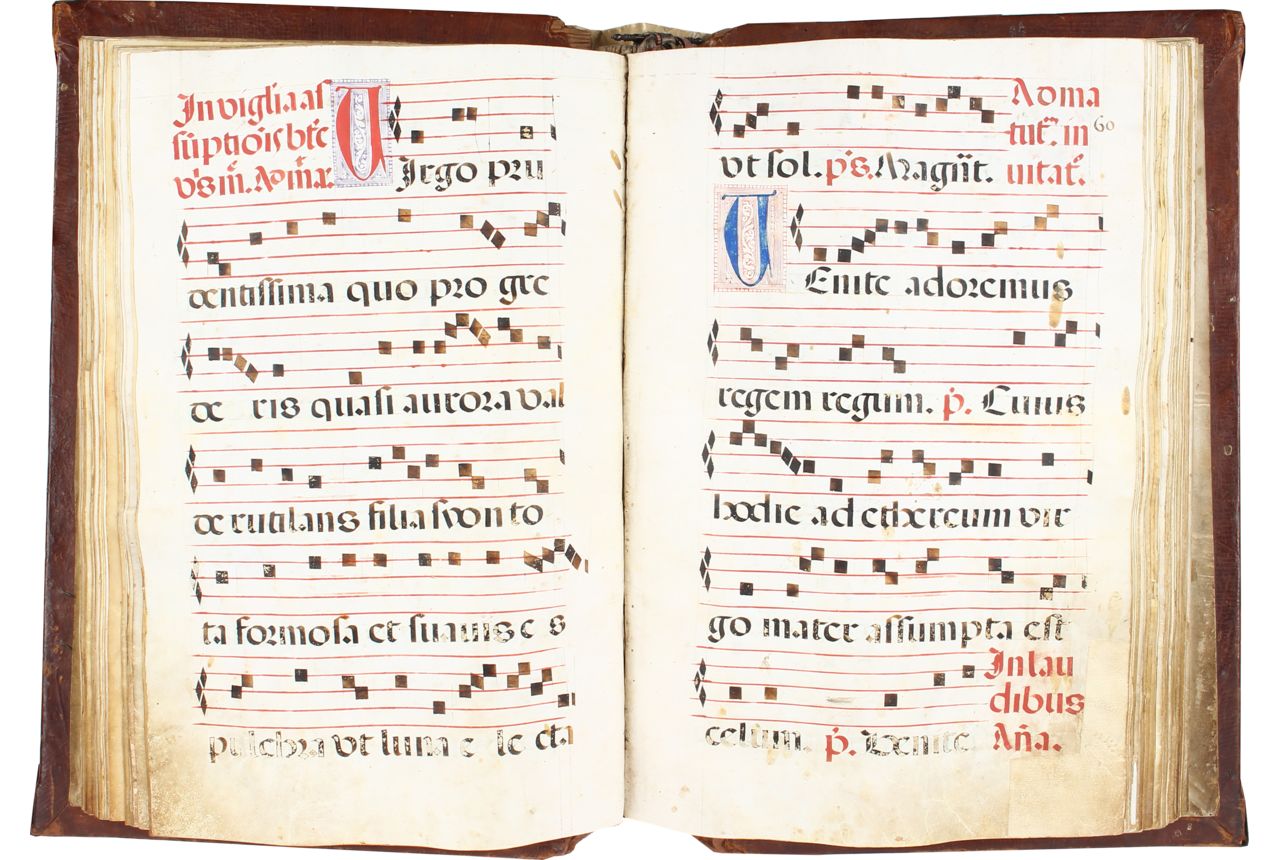 In vigilia as
sūptiōis btē
v̄gīs m̄. Ad m̄a:
VIrgo pru
dentissima quo pro gre
de ris quasi aurora val
de rutilans filia syon to
ta formosa et suauis e s
pulchra vt luna e le cta
vt sol. p̄s. Magn̄t.
Ad ma
tut̄. in
uitat̄.
60
VEnite adoremus
regem regum. p̄. Cuius
hodie ad ethereum vir
go mater assumpta est
celum. p̄. Uenite
In lau
dibus
Añ̄a.